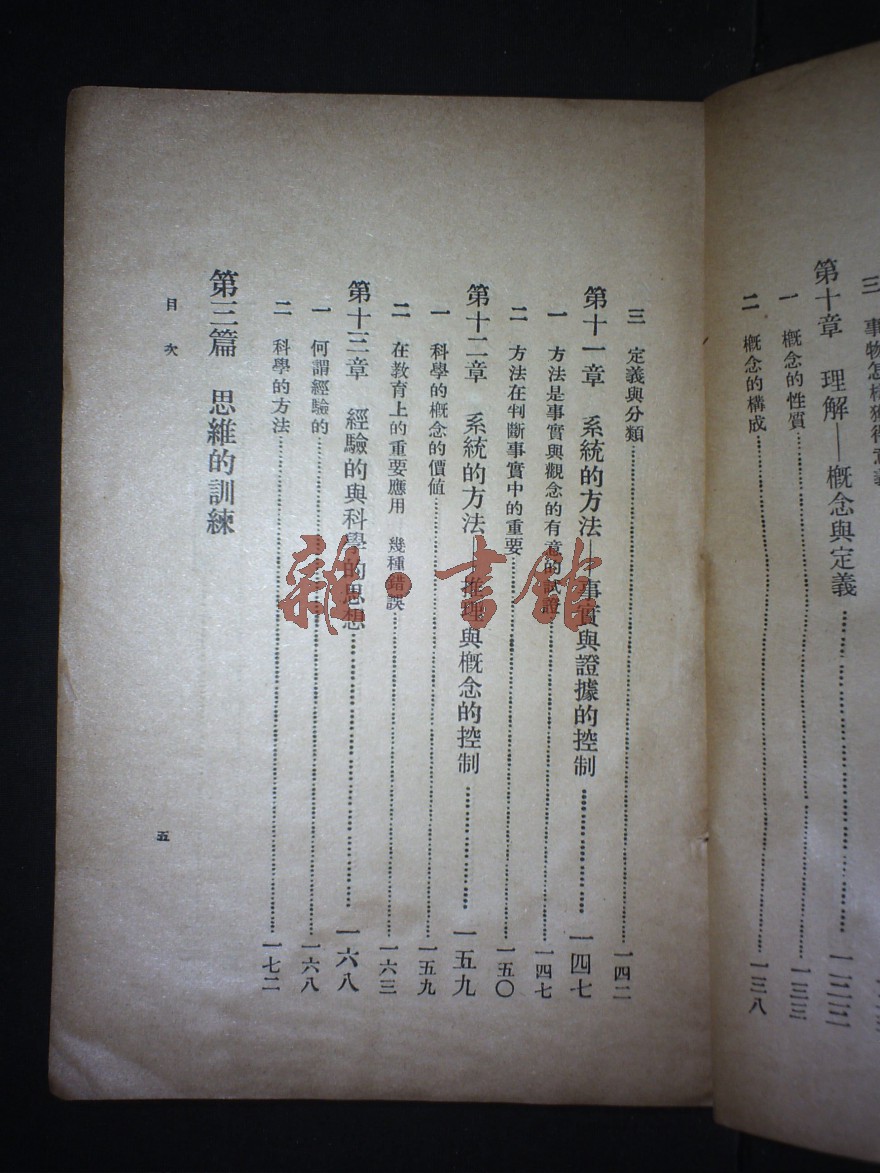 三 事物怎樣獲得意義
第十章 理解——概念與定義……一三三
一 概念的性質……一三三
二 概念的構成……一三八
三 定義與分類……一四二
第十一章 系統的方法——事實與證據的控制……一四七
一 方法是事實與觀念的有意的試證……一四七
二 方法在判斷事實中的重要……一五〇
第十二章 系統的方法——推理與概念的控制……一五九
一 科學的概念的價値……一五九
二 在教育上的重要應用 幾種錯誤……一六三
第十三章 經驗的與科學的思想……一六八
一 何謂經驗的……一六八
二 科學的方法……一七二
第三篇 思維的訓練
目次
五
雜·書館